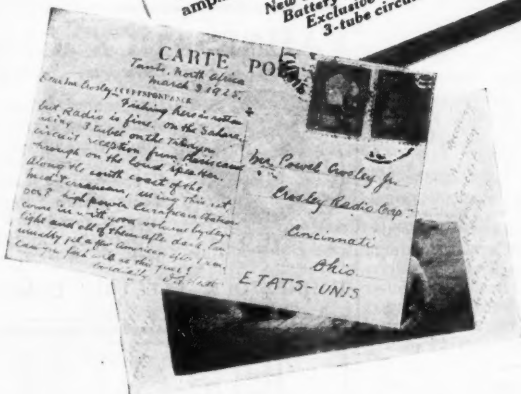 amp
New
Battery
Exclusive
3-tube circu
CARTE PO
Tunis, North Africa
March 9 1925.
Dear Mr Crosley
CORRESPONDANCE
Fishing here is rotten
but Radio is fine. On the Sahara,
using 3 tubes on the Trirdyn
circuit reception from Paris came
through on the loud speaker.
Along the north coast of the
Mediterranean, using this set
over high power European stations
come in with good volume by day
light and all of them after dark. Can
usually get a few American after 1 am.
can you beat
this
Cordially
Mr. Powel Crosley Jr.
Crosley Radio Corp.
Cincinnati
Ohio
ETATS-UNIS